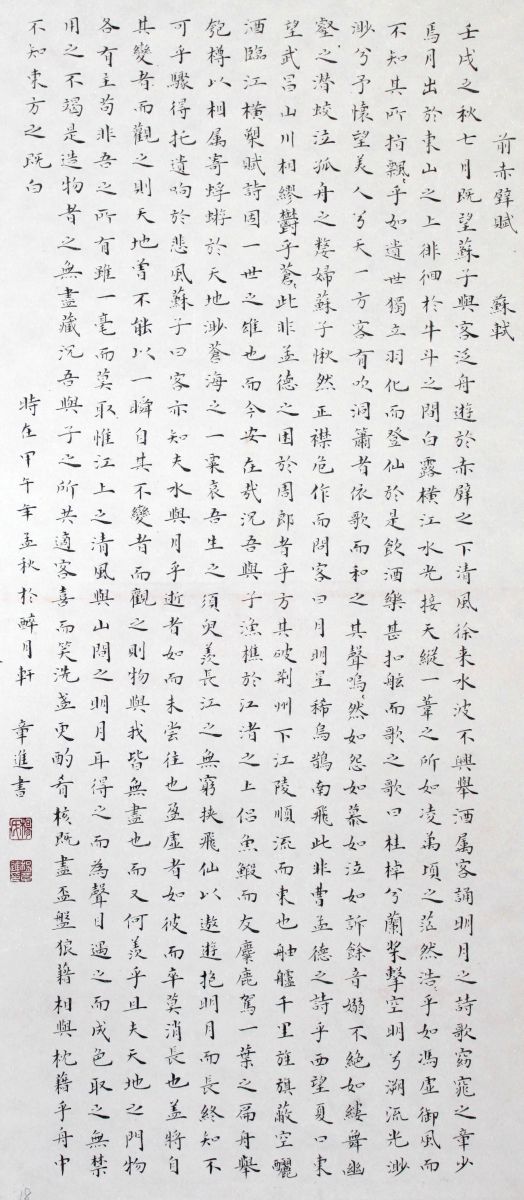 前赤壁賦 蘇軾
壬戌之秋七月既望蘇子與客泛舟遊於赤壁之下清風徐来水波不興舉酒属客誦明月之詩歌窈窕之章少
焉月出於東山之上徘徊於牛斗之間白露橫江水光接天縱一葦之所如凌萬頃之茫然浩々乎如馮虛御風而
不知其所指飄々乎如遺世獨立羽化而登仙於是飲酒樂甚扣舷而歌之歌曰桂棹兮蘭槳擊空明兮溯流光渺
渺兮予懷望美人兮天一方客有吹洞簫者依歌而和之其聲嗚々然如怨如慕如泣如訴餘音嫋不絕如縷舞幽
壑之潛蛟泣孤舟之嫠婦蘇子愀然正襟危作而問客曰月明星稀烏鵲南飛此非曹孟德之詩乎西望夏口東
望武昌山川相繆鬱乎蒼々此非孟德之困於周郎者乎方其破荆州下江陵順流而東也舳艫千里旌旗蔽空釃
酒臨江橫槊賦詩固一世之雄也而今安在哉況吾與子漁樵於江渚之上侶魚鰕而友麋鹿駕一葉之扁舟舉
匏樽以相属寄蜉蝣於天地渺蒼海之一粟哀吾生之須臾羨長江之無窮挾飛仙以遨遊抱明月而長終知不
可乎驟得托遺响於悲風蘇子曰客亦知夫水與月乎逝者如而未嘗往也盈虛者如彼而卒莫消長也盖將自
其變者而觀之則天地曾不能以一瞬自其不變者而觀之則物與我皆無盡也而又何羨乎且夫天地之門物
各有主苟非吾之所有雖一毫而莫取惟江上之清風與山間之明月耳得之而為聲目遇之而成色取之無禁
用之不竭是造物者之無盡藏況吾與子之所共適客喜而笑洗盞更酌肴核既盡盃盤狼藉相與枕藉乎舟中
不知東方之既白
時在甲午年孟秋於醉月軒 章進書
18